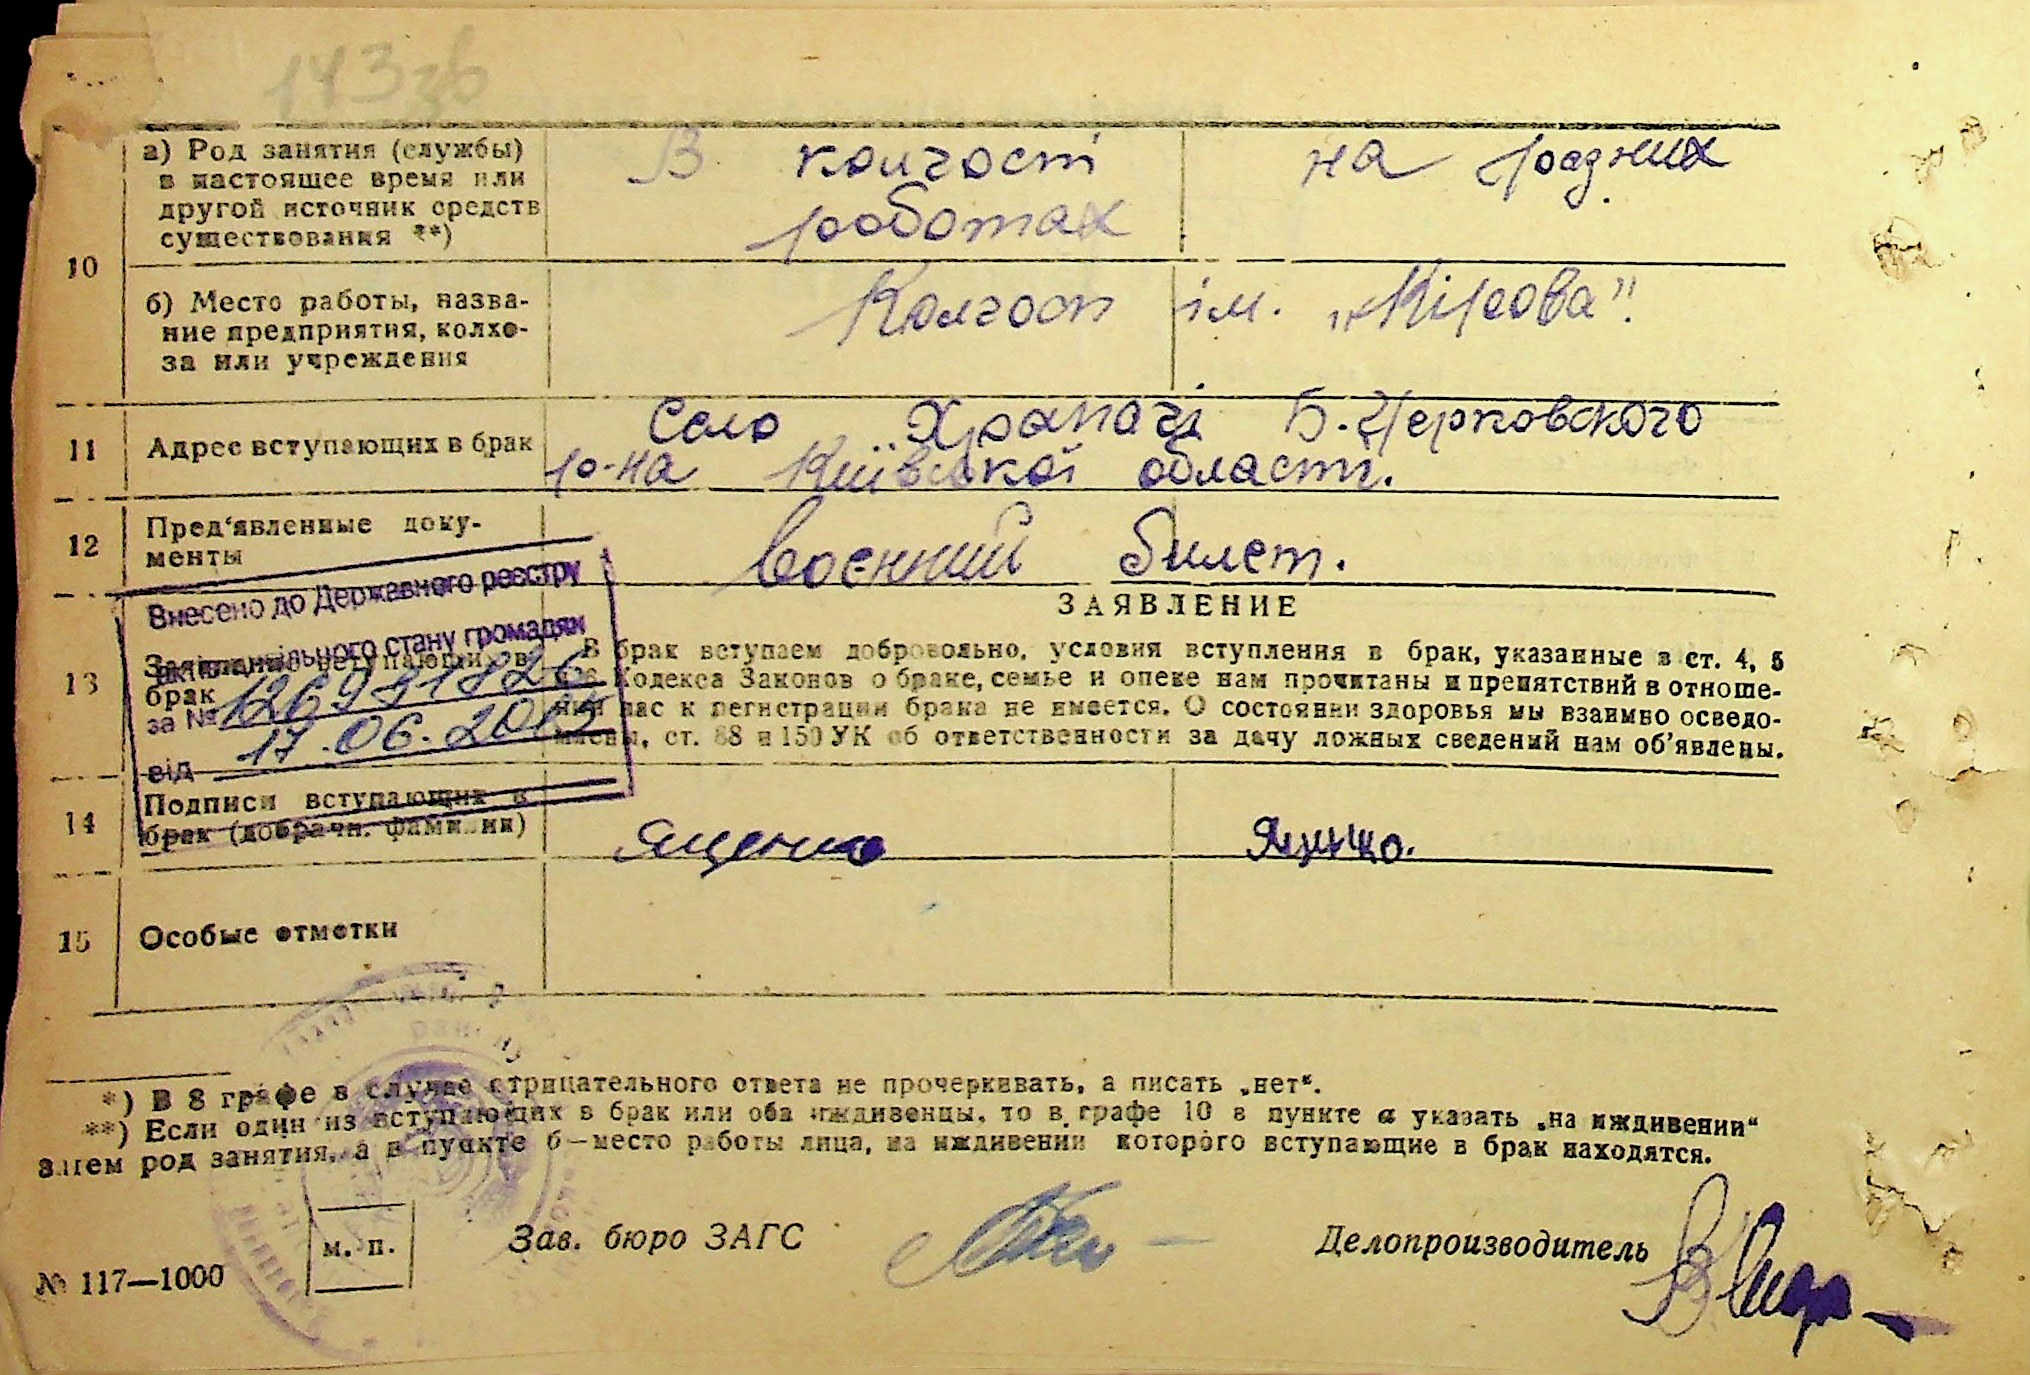 143зв
10
а) Род занятия (службы)
в настоящее время или
другой источник средств
существования **)
В колгості на розних
роботах
б) Место работы, назва-
ние предприятия, колхо-
за или учреждения
Колгосп ім. „Кірова".
11
Адрес вступающих в брак
Село Храпачі Б.Церковского
р-на Київської області.
12
Пред'явленные доку-
менты
Воєнний билет.
13
Заявление вступающих в
брак
ЗАЯВЛЕНИЕ
В брак вступаем добровольно, условия вступления в брак, указанные в ст. 4, 5
Кодекса Законов о браке, семье и опеке нам прочитаны и препятствий в отноше-
нии нас к регистрации брака не имеется. О состоянии здоровья мы взаимно осведо-
млены, ст. 88 и 150 УК об ответственности за дачу ложных сведений нам об'явлены.
Внесено до Державного реєстру
актів цивільного стану громадян
за №
від 17.06.2015
14
Подписи вступающих в
брак (добрачн. фамилии)
Яценко
Яценко.
15
Особые отметки
*) В 8 графе в случае отрицательного ответа не прочеркивать, а писать „нет".
**) Если один из вступающих в брак или оба иждивенцы, то в графе 10 в пункте а указать „на иждивении"
затем род занятия, а в пункте б—место работы лица, на иждивении которого вступающие в брак находятся.
м. п.
Зав. бюро ЗАГС
Делопроизводитель
№ 117—1000